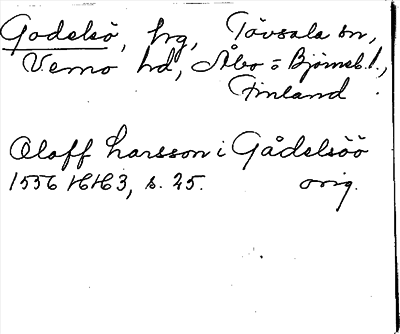 Godelsö, hrg, Tövsala sn,
Vemo hd, Åbo = Björneb. l.,
Finland.
Olaff Larsson i Gådelsöö
1556 HH3, s. 25. orig.